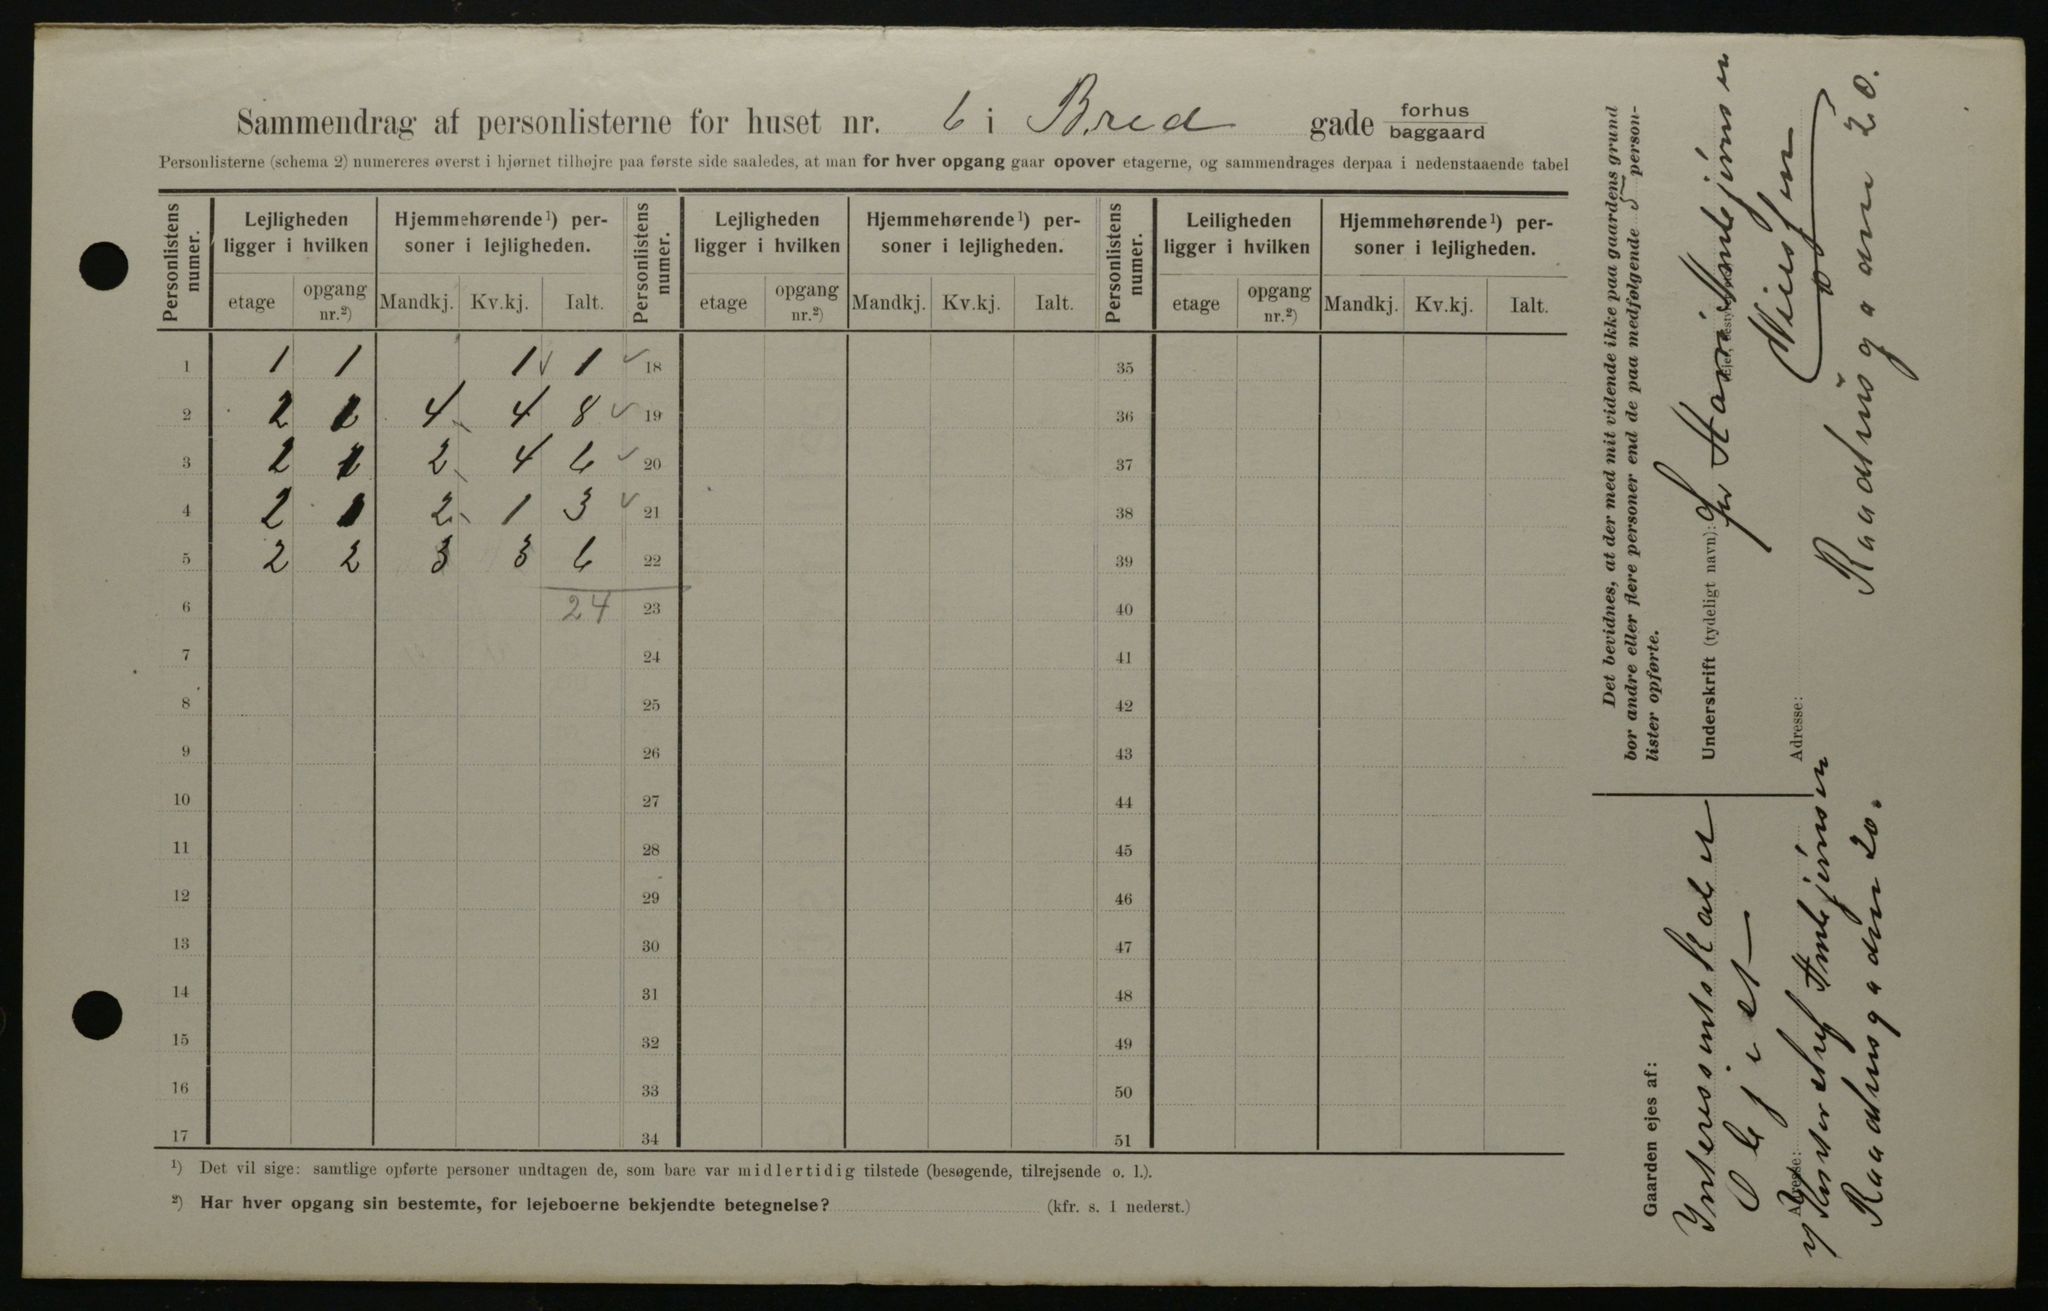 Sammendrag af personlisterne for huset nr. 6 i Bred gade forhus baggaard
Personlisterne (schema 2) numereres øverst i hjørnet tilhøjre paa første side saaledes, at man for hver opgang gaar opover etagerne, og sammendrages derpaa i nedenstaaende tabel
Personlistens numer. Lejligheden ligger i hvilken Hjemmehørende¹) personer i lejligheden. Personlistens numer. Lejligheden ligger i hvilken Hjemmehørende¹) personer i lejligheden. Personlistens numer. Leiligheden ligger i hvilken Hjemmehørende¹) personer i lejligheden.
etage opgang nr.²) Mandkj. Kv.kj. Ialt. etage opgang nr.²) Mandkj. Kv.kj. Ialt. etage opgang nr.²) Mandkj. Kv.kj. Ialt.
1 1 1 1 1 18 35
2 2 4 4 8 19 36
3 2 2 4 6 20 37
4 2 1 2 1 3 21 38
5 2 2 3 3 6 22 39
6 24 23 40
7 24 41
8 25 42
9 26 43
10 27 44
11 28 45
12 29 46
13 30 47
14 31 48
15 32 49
16 33 50
17 34 51
¹) Det vil sige: samtlige opførte personer undtagen de, som bare var midlertidig tilstede (besøgende, tilrejsende o. l.).
²) Har hver opgang sin bestemte, for lejeboerne bekjendte betegnelse? (kfr. s. 1 nederst.)
Det bevidnes, at der med mit vidende ikke paa gaardens grund
bor andre eller flere personer end de paa medfølgende 5 person-
lister opførte.
Underskrift (tydeligt navn):
Adresse: Raadhusgaden 20.
Gaarden ejes af: Interessentskabet
Adresse:
Raadhusgaden 20.